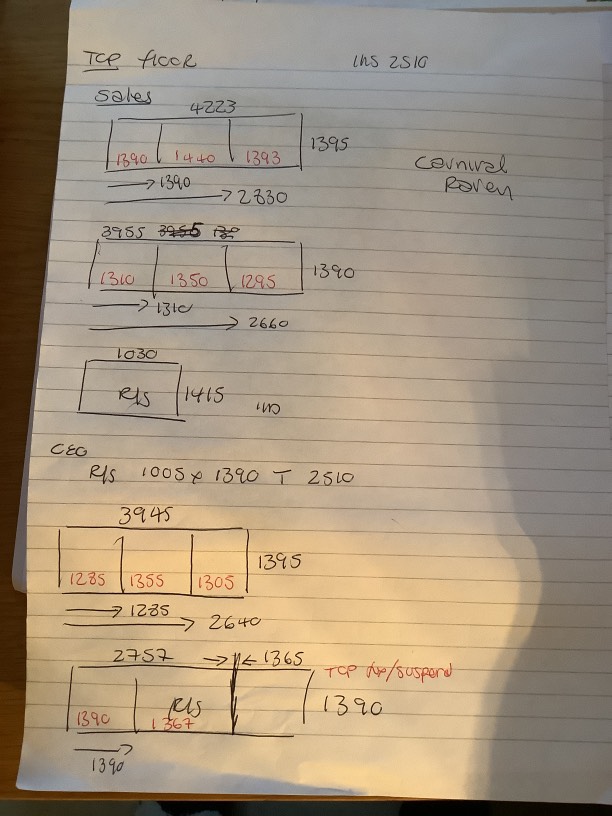 TOP FLOOR INS 2510
Sales
4223
1390 1440 1393 1395
→1390
→2830
Carnival
Raven
3955 3955
1310 1350 1295 1390
→1310
→2660
1030
R/s 1415 INS
CEO
R/s 1005 x 1390 T 2510
3945
1285 1355 1305 1395
→1285
→2640
2757 →←1365
TOP fix/suspend
1390 R/s 1367 1390
→
1390